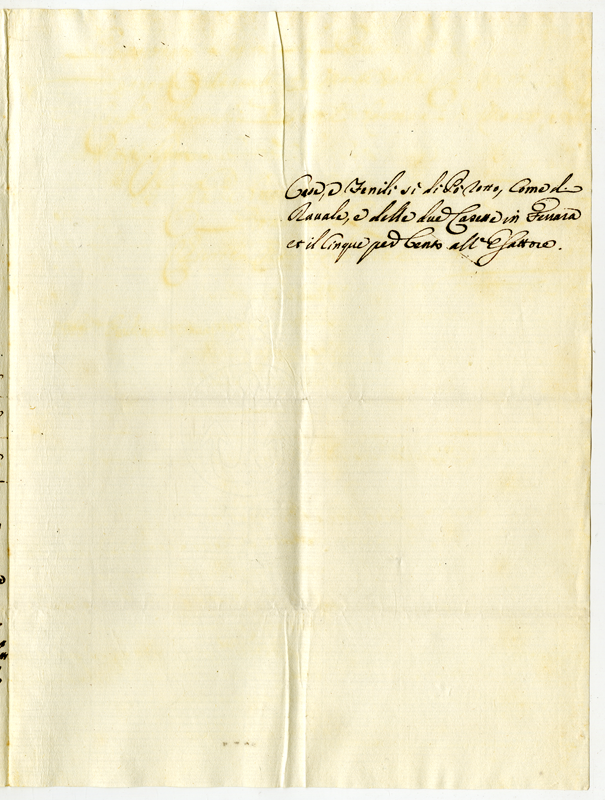 Case, e Fenili sì di Pò rotto, come di
Ravale, e delle due Casette in Ferrara
et il Cinque per Cento all' Esattore.